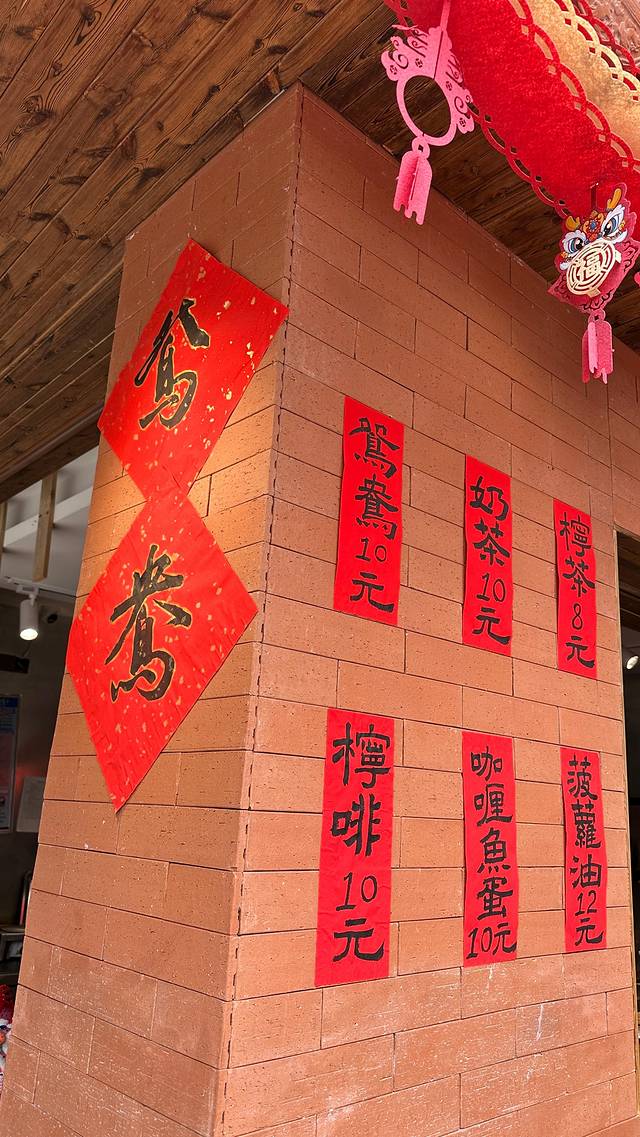 福
鴛
鴦
鴛鴦10元
奶茶10元
檸茶8元
檸啡10元
咖喱魚蛋10元
菠蘿油12元